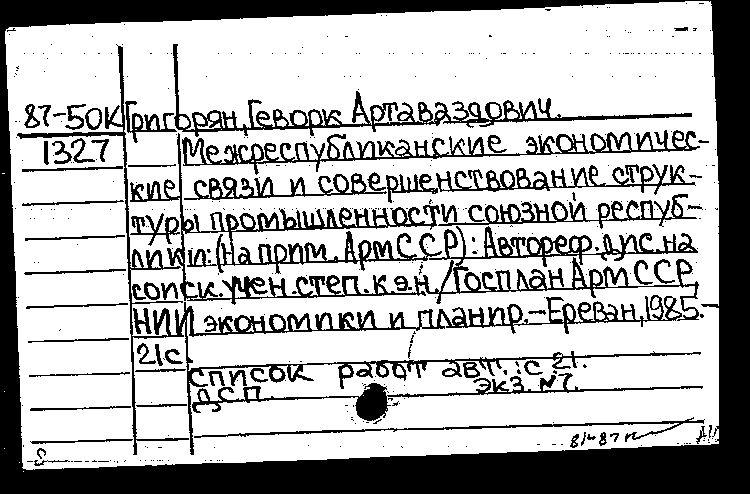 87-50К Григорян, Геворк Артаваздович.
1327 Межреспубликанские экономичес-
кие связи и совершенствование струк-
туры промышленности союзной респуб-
лики: (На прим. АрмССР): Автореф. дис. на
соиск. учен. степ. к.э.н. / Госплан АрмССР,
НИИ экономики и планир. – Ереван, 1985. –
21с.
список работ авт.: с 21.
ДСП. экз. №7.